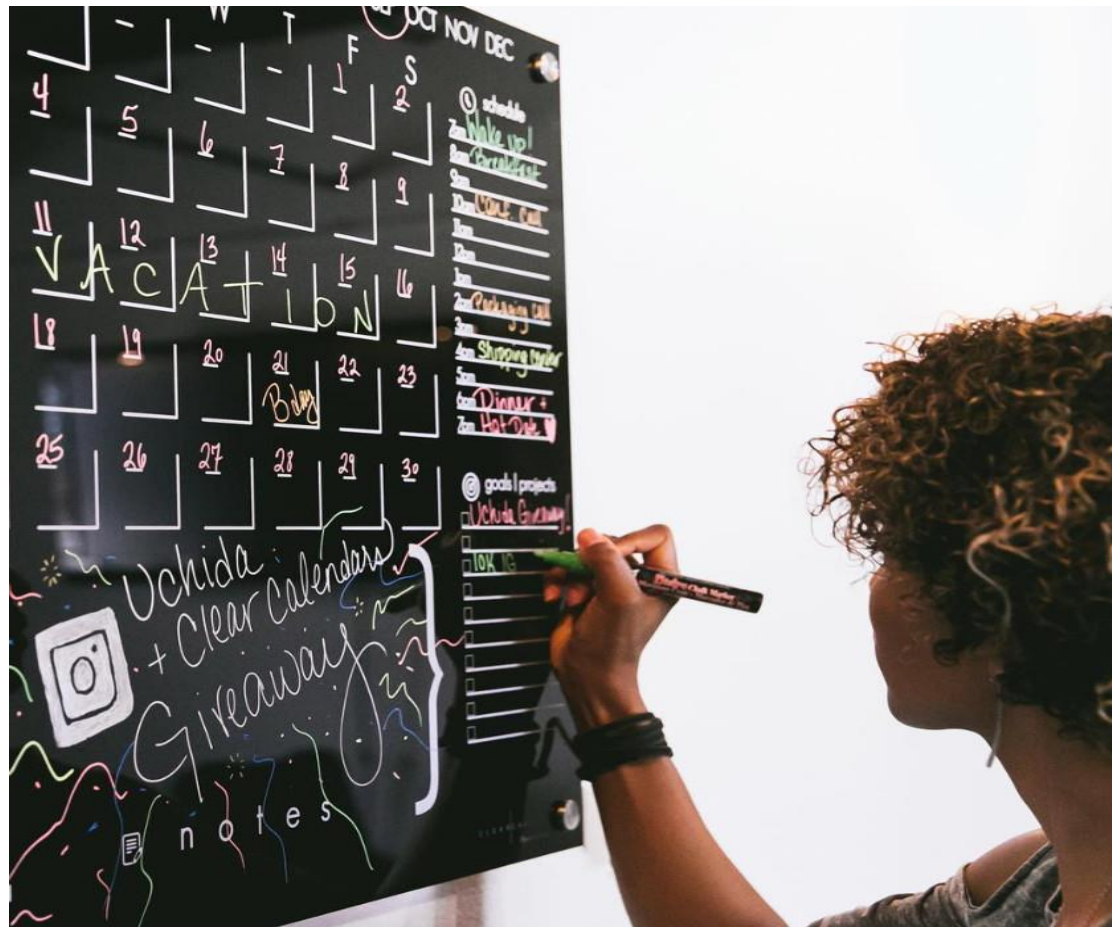 OCT NOV DEC
W T F S
1 2
4 5 6 7 8 9
11 12 13 14 15 16
VACATION
18 19 20 21 22 23
B day
25 26 27 28 29 30
schedule
7am Wake up!
8am Breakfast
9am
10am Conf. call
11am
12pm
1pm
2pm Packaging call
3pm
4pm Shopping
5pm
6pm Dinner +
7pm Hot Date
goals | projects
Uchida Giveaway!
10K IG
Uchida
+ Clear Calendars
Giveaway
notes
Chalk Marker